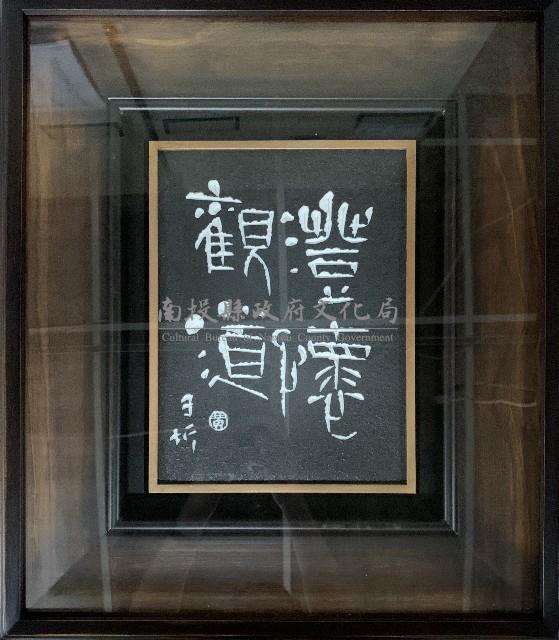 澄懷
觀道
南投縣政府文化局
Cultural Bureau of Nantou County Government